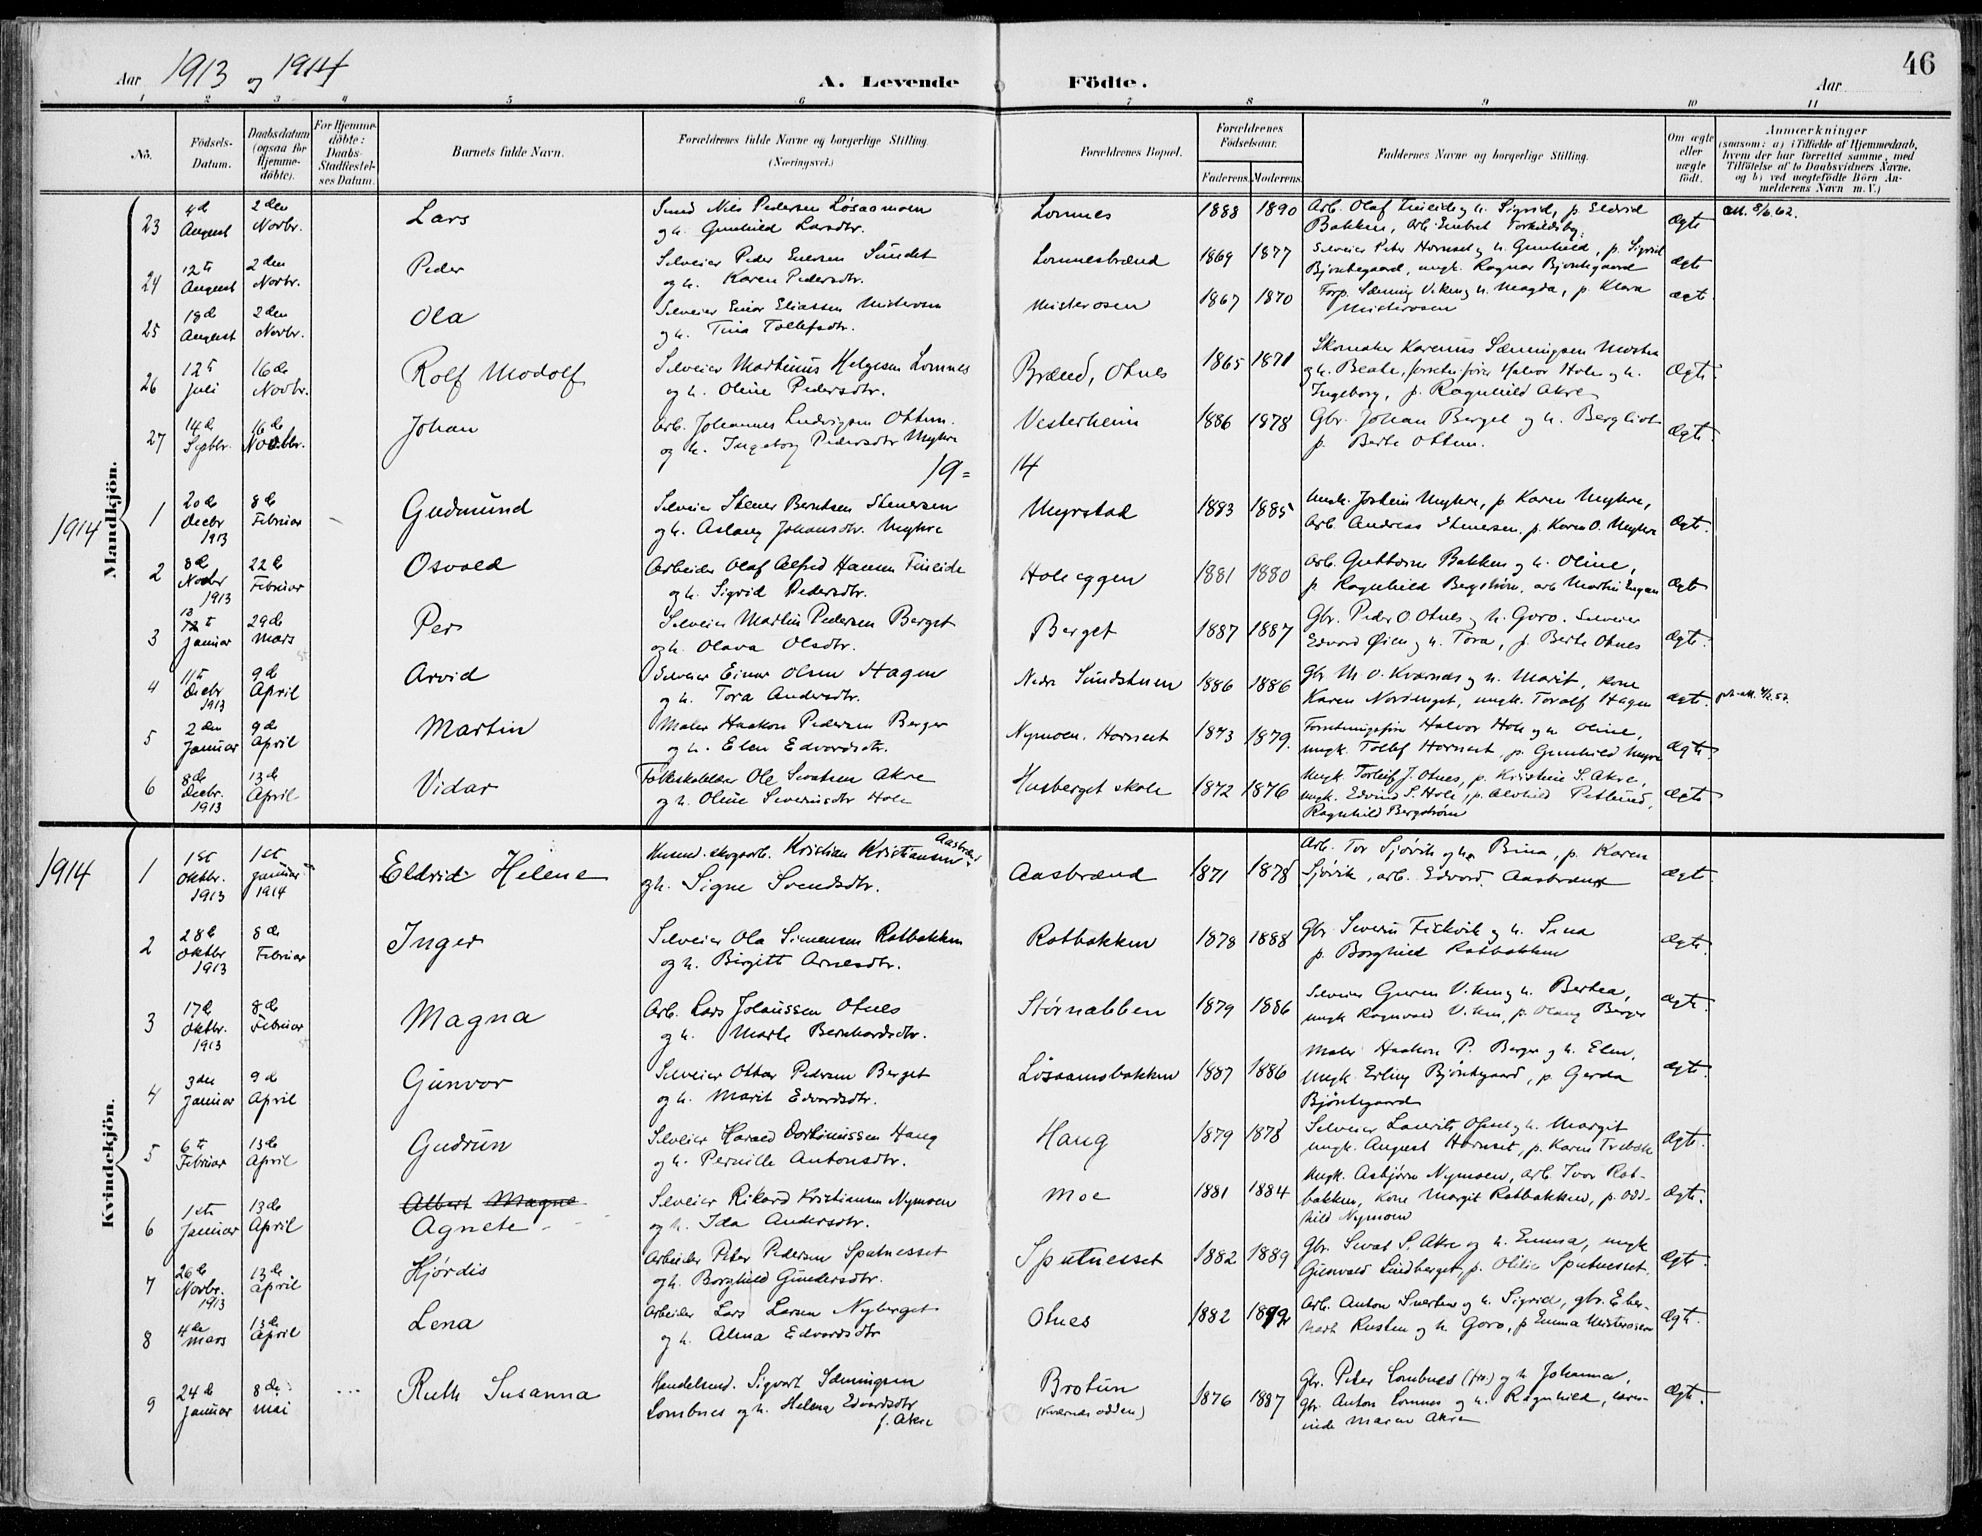 Aar 1913 og 1914
A. Levende Födte.
Aar
46
1 2 3 4 5 6 7 8 9 10 11
No.
Födsels-Datum.
Daabsdatum (ogsaa for Hjemme-döbte).
For Hjemme-döbte: Daabs-Stadfæstel-ses Datum.
Barnets fulde Navn.
Forældrenes fulde Navne og borgerlige Stilling (Næringsvei.)
Forældrenes Bopæl.
Forældrenes Födselsaar.
Faderens. Moderens.
Faddernes Navne og borgerlige Stilling.
Om ægte eller uægte födt.
Anmærkninger
(saasom: a) i Tilfælde af Hjemmedaab,
hvem der har forrettet samme, med
Tilföielse af to Daabsvidners Navne.
og b) ved uægtefödte Börn An-
melderens Navn m. V.)
Mandkjön.
23 4d August 2den Novbr. Lars Smed Nils Pedersen Løsaamoen og h. Gunhild Larsdtr. Lomnes 1888 1890 Arb. Olaf Fineide og h. Sigrid, p. Eldrid Bakken, Arb. Embret Torkildsby. Ægte
24 12te August 2den Novbr. Peder Selveier Peder Enersen Sundet og h. Karen Pedersdtr. Lomnesbrænd 1869 1877 Selveier Peter Hornset og h. Gunhild, p. Sigrid Bjøntegaard, ungk. Ragnar Bjøntegaard ægte
25 18d August 2den Novbr. Ola Selveier Einar Eliassen Misterosen og h. Tina Tollefsdtr. Misterosen 1867 1870 Forp. Sæming Viken og h. Magda, p. Klara Misterosen ægt.
26 12te Juli 16de Novbr. Rolf Modolf Selveier Martinus Helgesen Lomnes og h. Oline Pedersdtr. Brænd, Otnes 1865 1871 Skomaker Karenus Sæmingsen og h. Beate, Halvor Hole og h. Ingeborg, p. Ragnhild Akre Ægte.
27 14de Septbr. 16de Novbr. Johan Arb. Johannes Ludvigsen Ottem. og h. Ingeborg Pedersdtr Myhre Vesterheim 1886 1878 Gbr. Johan Berget og h. Bergliot p. Berte Ottem. Ægte
19=14
1914
1 20de Decbr 1913 8de Februar Gudmund Selveier Stener Berntsen Stenersen og h. Aslaug Johansdtr. Myhre Myrstad 1883 1885 Ungk. Jostein Myhre, p Karen Myhre, Arb. Andreas Stenersen, p. Karen O. Myhre Ægt.
2 8de Novbr 1913 22de Februar Osvald Arbeider Olaf Alfred Hansen Fineide og h. Sigrid Pedersdtr. Holeeggen 1881 1880 Arb. Guttorm Bakken og h. Oline, p. Ragnhild Bergstrøm, arb. Martin Engan Ægt
3 Januar 29de Mars Per Selveier Martin Pedersen Berget og h. Olava Olsdtr. Berget 1887 1887 Gbr. Peder O Otnes og h. Goro. Selveier Edvard Øien og h. Tora, p. Berte Otnes Ægte.
4 11te Decbr. 1913 9de April Arvid Selveier Einar Olsen Hagen og h. Tora Andersdtr. Nedre Sundstuen 1886 1886 Gbr M O. Kværnes og h. Marit, kone Karen Nordenget, ungk. Toralf Hagen ægt.
5 2den Januar 9de April Martin Maler Haakon Pedersen Berger og h. Elen Edvardsdtr. Nymoen. Hornset 1873 1879. Forretningsfører Halvor Hole og h. Oline, ungk. Tollef Hornset, p. Gunhild Myhre ægte
6 8de Decbr. 1913 13de April Vidar Folkeskolelærer Ole Sivertsen Akre og h. Oline Severinsdtr Hole Husberget skole 1872 1876 Ungk. Torleif J. Otnes, p. Kristine S. Akre, ungk. Edvind S. Hole, p. Alvhild Ragnhild Bergstrøm ægte
Kvindekjön.
1914
1 1ste Oktbr. 1913 1ste januar 1914 Eldrid Helene Husmd. skogsarb. Kristian Kristiansen Aasbrænd og h. Signe Svendsdtr. Aasbrænd 1871 1878 Arb. Tor Sjøvik og h. Bina, p. Karen Sjøvik, arb. Edvard Aasbrænd ægt.
2 28de Oktbr 1913 8de Februar Inger Selveier Ola Simensen Ratbakken og h. Birgitt Arnesdtr. Ratbakken 1878 1888 Gbr Severin Fiskvik og h. Sina p. Borghild Ratbakken ægt.
3 17de Oktbr. 1913 8de Februar Magna Arb. Lars Johanssen Otnes og h. Marte Bernhardsdtr. Størnabben 1879 1886 Selveier Viken og h. Bertea, ungk Ragnvald Viken, p. Olaug Berger ægte
4 3die Januar 9de April Gunvor Selveier Ottar Pedersen Berget og h. Marit Edvardsdtr. Løsaamobakken 1887 1886 Maler Haakon P. Berger og h. Elen, Ungk. Erling Bjøntegaard, p. Gerda Bjøntegaard ægte.
5 6te Februar 13de April Gudrun Selveier Harald Haug og h. Pernille Antonsdtr. Haug 1879 1878 Selveier Laurits og h. Margit ungk. August Hornset, p. Karen Ægte.
6 1ste Januar 13de April Albert Magne Agnete Selveier Rikard Kristiansen Nymoen og h. Ida Andersdtr. Moe 1881 1884 Ungk. Asbjørn Nymoen, arb. Ivar Rat-bakken, kone Margit Ratbakken, p. Odd-hild Nymoen Ægte.
7 26de Novbr. 1913 13de April Hjørdis Arbeider Peter Pedersen Sputnesset og h. Borghild Gundersdtr. Sputnesset 1882 1889 Gbr. Sivert S. Akre og h. Emma, ungk Gunvald Lindberget, p. Otilie Sputnesset. Ægte.
8 4de Mars 13de April Lena Arbeider Lars Larsen Nyberget og h. Alma Edvardsdtr Otnes 1882 1892 Arb. Anton og h. Sigrid, gbr. Eber-hart Rusten og h. Goro, p Emma Misterosen Ægte.
9 24de Januar 8de Mai Ruth Susanna Handelsmd. Sigvart Sæmingsen Lombnes og h. Helena Edvardsdtr f. Akre Brotun (Kværnesodden) 1876 1887 Gbr. Peter Lombnes og h Johanna, gbr. Anton Lomnes og h. Ragnhild, lærer-inde Maren Akre Ægte.